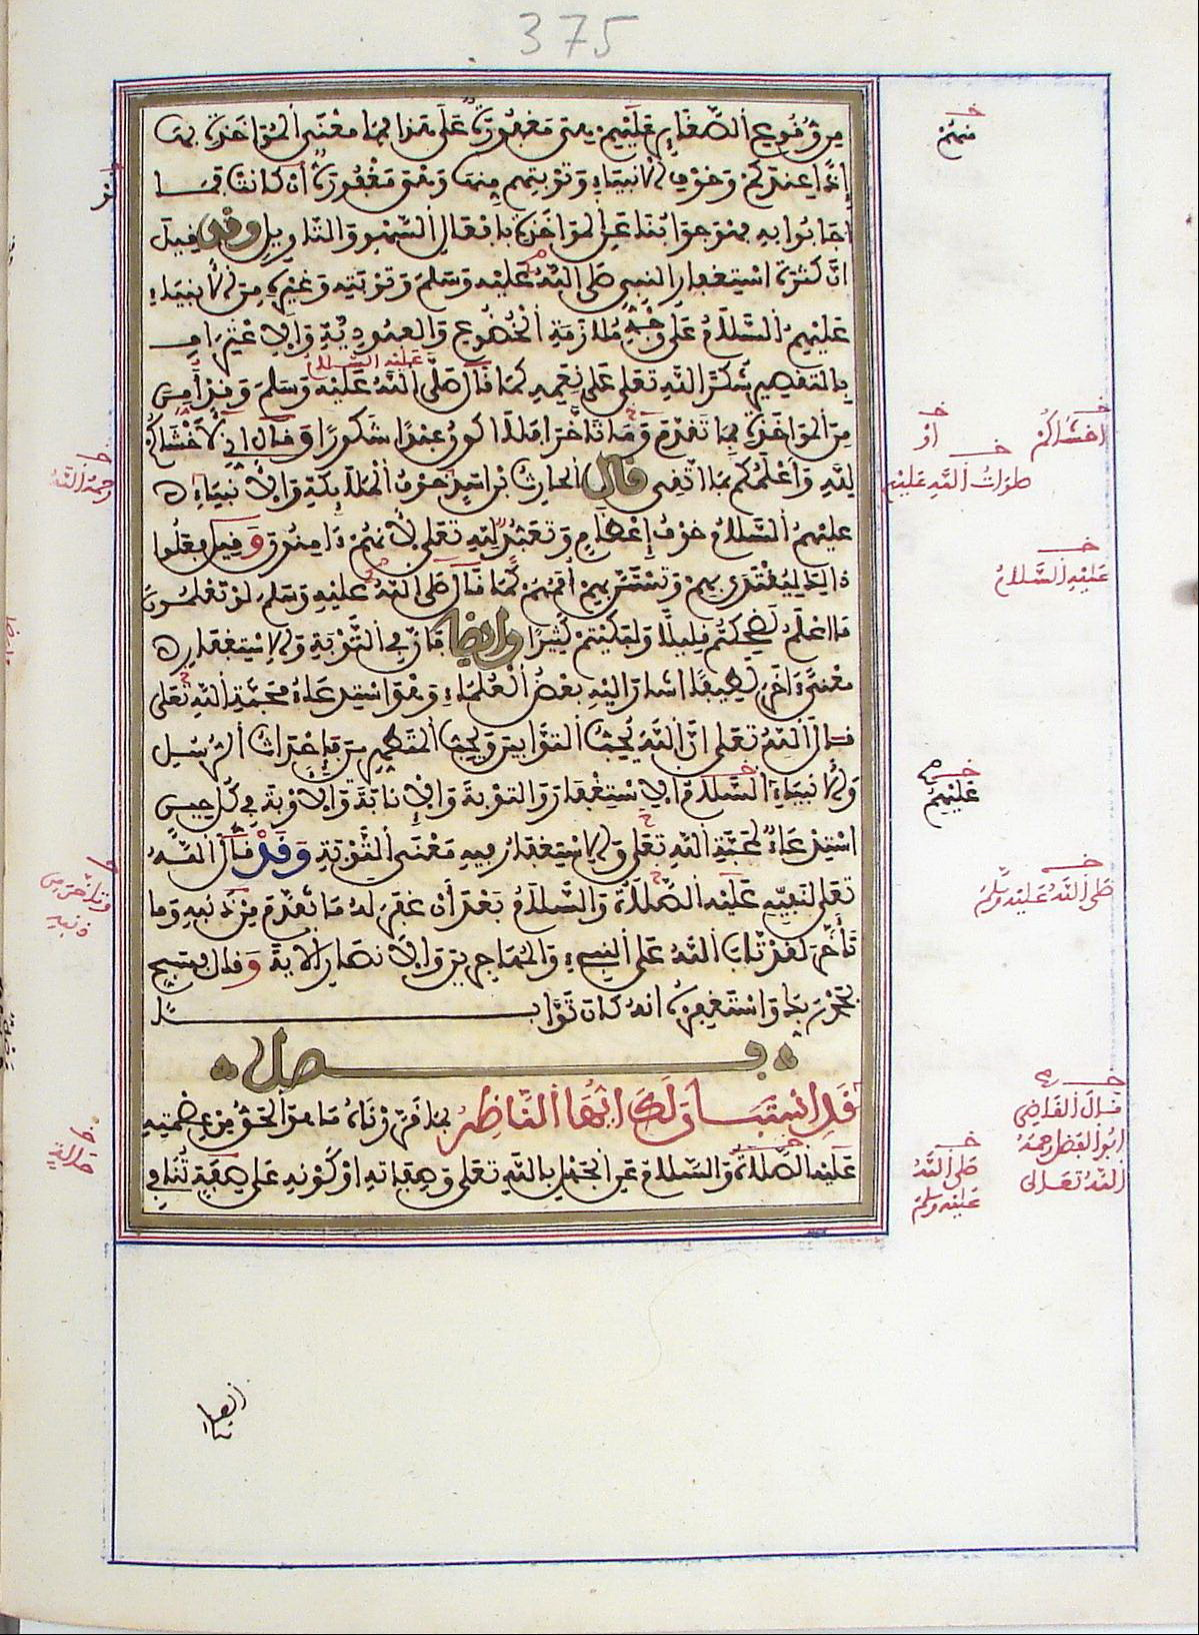 375
من وقوع الصغاير عليهم هي مغفورة على هذا فما معنى المؤاخذة بها
إذا عندكم وخوف الأنبياء وتوبتهم منها وهي مغفورة أن كانت فما
أجابوا به فهو جوابنا عن المؤاخذة بافعال السهو والتاويل وقد قيل
ان كثرة استغفار النبي صلى الله عليه وسلم وتوبته وغيره من الأنبياء
عليهم السلام على وجه ملازمة الخضوع والعبودية والاعتراف
بالتقصير شكرا لله تعلى على نعمه كما قال صلى الله عليه وسلم وقد أمن
من المؤاخذة بما تقدم وما تأخر افلا اكون عبدا شكورا وقال اني لأخشاكم
لله وأعلمكم بما اتقى قال الحارث بن اسد خوف الملايكة والأنبياء
عليهم السلام خوف إعظام وتعبد لله تعلى لأنهم ءامنون وقيل فعلوا
ذالك ليقتدى بهم وتستن بهم أممهم كما قال صلى الله عليه وسلم لو تعلمون
ما اعلم لضحكتم قليلا ولبكيتم كثيرا وايضا فان في التوبة والاستغفار
معنى ءاخر لطيفا اشار اليه بعض العلماء وهو استدعاء محبة الله تعلى
قال الله تعلى ان الله يحب التوابين ويحب المتطهرين فإحداث الرسل
والأنبياء السلام الاستغفار والتوبة والإنابة والأوبة في كل حين
استدعاء لمحبة الله تعلى والاستغفار فيه معنى التوبة وقد قال الله
تعلى لنبيه عليه الصلاة والسلام بعد أن غفر له ما تقدم من ذنبه وما
تأخر لقد تاب الله على النبيء والمهاجرين والأنصار الاية وقال فسبح
بحمد ربك واستغفره انه كان توابا
فصل
قد استبان لك ايها الناظر بما قررناه ما هو الحق من عصمته
عليه الصلاة والسلام عن الجهل بالله تعلى وصفاته او كونه على صفة تنافي
منهم
أخشاكم
او
صلوات الله عليهم
عليه السلام
عليهم
صلى الله عليه وسلم
قال القاضي
ابو الفضل رحمه
الله تعالى
صلى الله
عليه وسلم
رحمه الله
عليه السلام